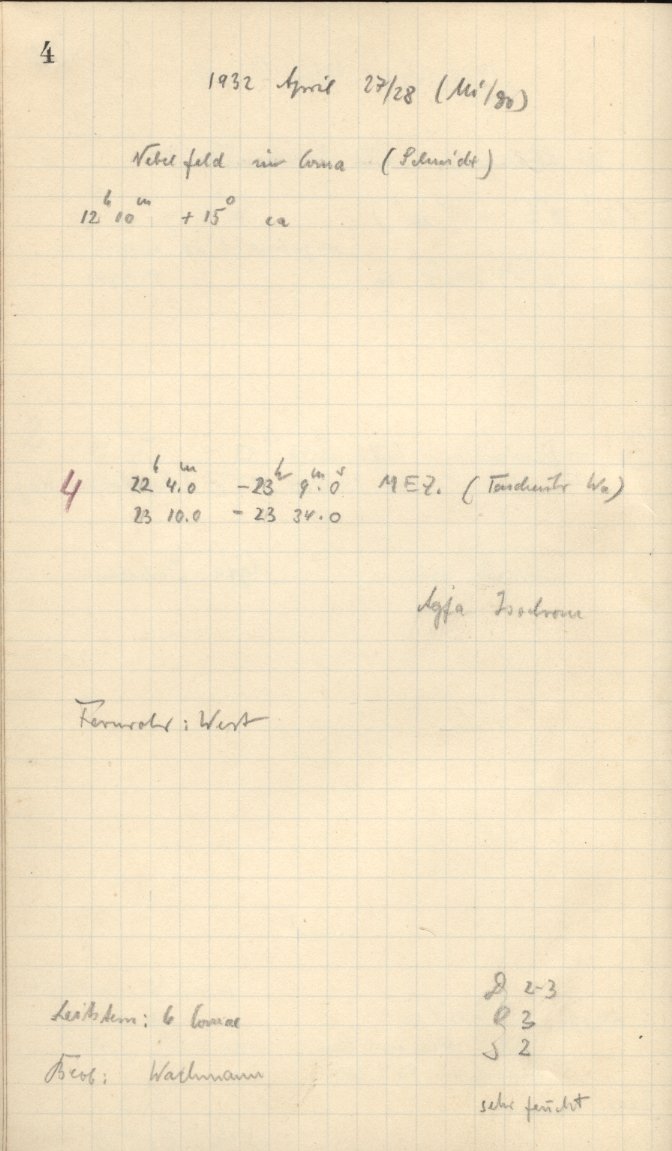 4
1932 April 27/28 (Mi/Do)
Nebelfeld in Coma (Schmidt)
12ʰ 10ᵐ + 15° ca
4 22ʰ 4.ᵐ0 - 23ʰ 9.ᵐ0 MEZ. (Taschenuhr Wa)
23 10.0 - 23 34.0
Agfa Isochrom
Fernrohr: West
D 2-3
Leitstern: 6 Comae
3
S 2
Beob: Wachmann
sehr feucht